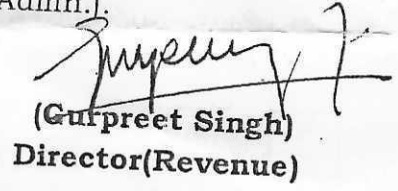 Admn.].
(Gurpreet Singh)
Director(Revenue)